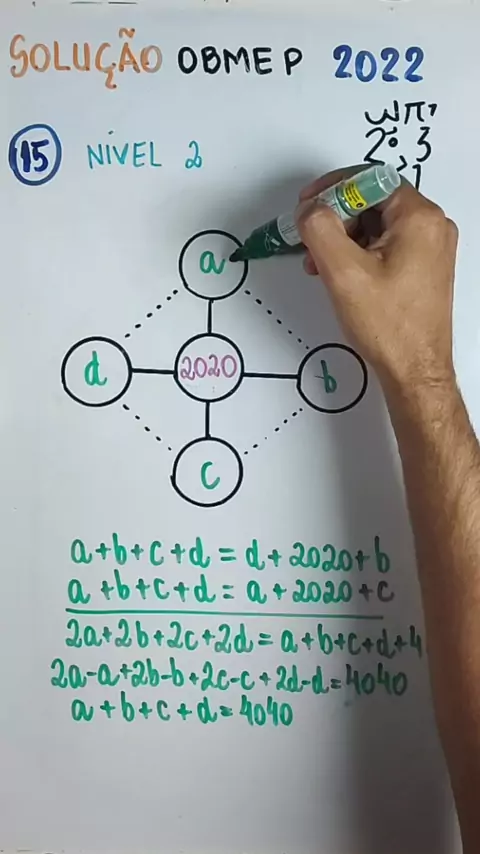 SOLUÇÃO OBMEP 2022
15 NÍVEL 2
a
d 2020 b
c
a+b+c+d = d+2020+b
a+b+c+d = a+2020+c
2a+2b+2c+2d = a+b+c+d+4
2a-a+2b-b+2c-c+2d-d=4040
a+b+c+d=4040